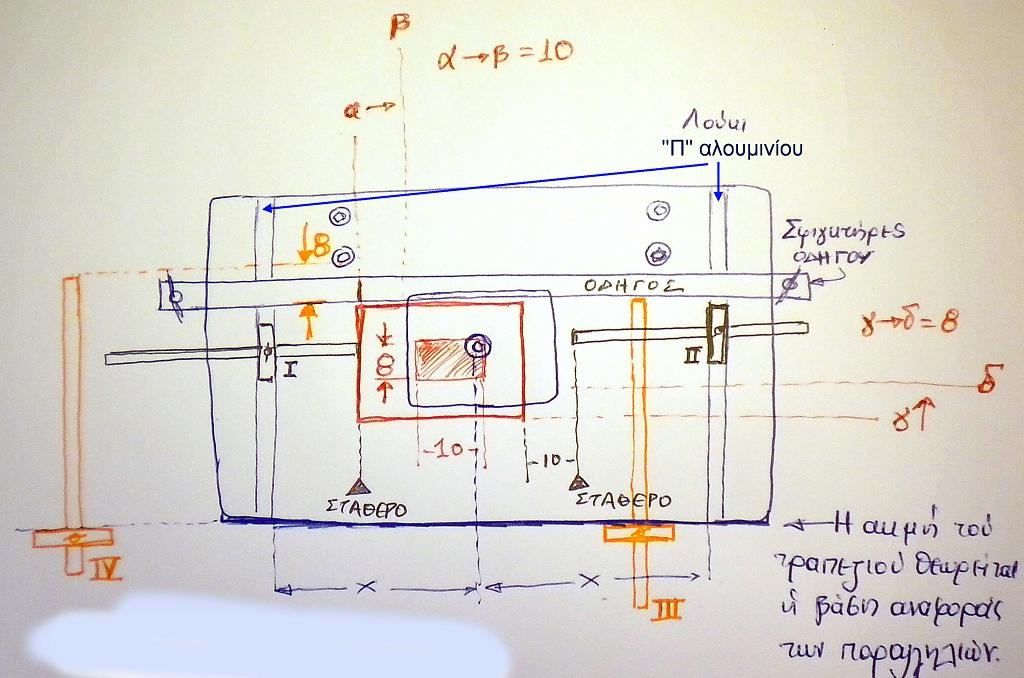 β
α → β = 10
α →
Λούκι
"Π" αλουμινίου
Σφιγκτήρες
ΟΔΗΓΟΥ
8
ΟΔΗΓΟΣ
γ → δ = 8
I
8
II
δ
γ ↑
-10-
-10-
ΣΤΑΘΕΡΟ
ΣΤΑΘΕΡΟ
← Η ακμή του
τραπεζιού θεωρείται
ή βάση αναφοράς
των παραλληλιών.
IV
X
X
III